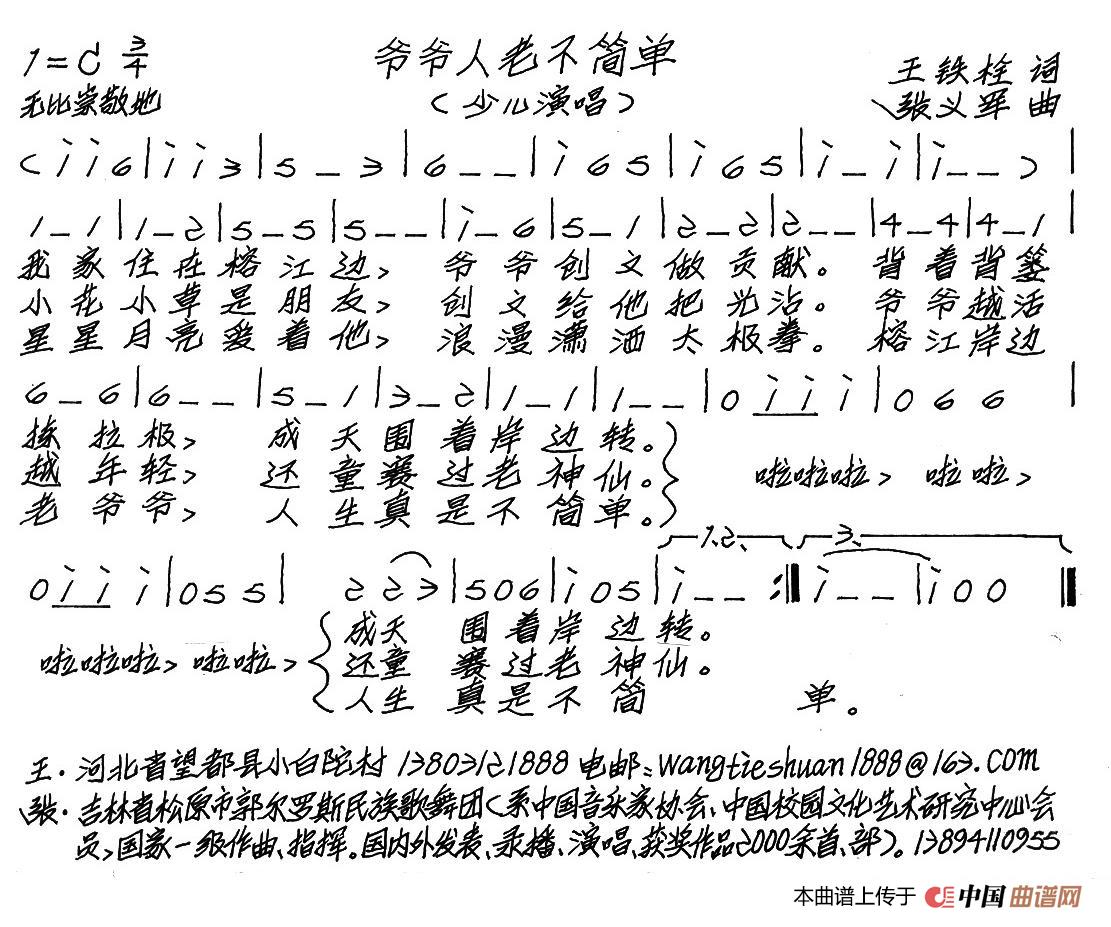 爷爷人老不简单
1=C 3/4
王铁栓 词
无比崇敬地
(少儿演唱)
张义军 曲
(i i 6|i i 3|5 – 3|6 – –|i 6 5|i 6 5|i – i|i – –)|
1 – 1|1 – 2|5 – 5|5 – –|i – 6|5 – 1|2 – 2|2 – –|4 – 4|4 – 1|
我家住在榕江边, 爷爷创文做贡献。背着背篓
小花小草是朋友, 创文给他把光沾。爷爷越活
星星月亮爱着他, 浪漫潇洒太极拳。榕江岸边
6 – 6|6 – –|5 – 1|3 – 2|1 – 1|1 – –|0 i i i|0 6 6|
拣垃极, 成天围着岸边转。
越年轻, 还童赛过老神仙。 啦啦啦, 啦啦,
老爷爷, 人生真是不简单。
1.2. 3.
0 i i i|0 5 5| 2 2 3|5 0 6|i 0 5|i – – :‖i – –|i 0 0‖
成天 围着岸边转。
啦啦啦, 啦啦, 还童 赛过老神仙。
人生 真是不简 单。
王·河北省望都县小白陀村 13803121888 电邮:wangtieshuan1888@163.com
张·吉林省松原市郭尔罗斯民族歌舞团(系中国音乐家协会、中国校园文化艺术研究中心会
员,国家一级作曲、指挥。国内外发表、录播、演唱、获奖作品2000余首、部)。13894110955
本曲谱上传于 中国曲谱网